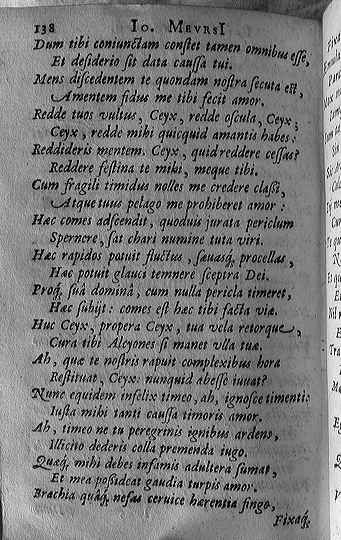 138 IO. MEVRSI
Dum tibi coniunctam constet tamen omnibus esse,
Et desiderio sit data caussa tui.
Mens discedentem te quondam nostra secuta est,
Amentem fidus me tibi fecit amor.
Redde tuos vultus, Ceyx, redde oscula, Ceyx;
Ceyx, redde mihi quicquid amantis habes.
Reddideris mentem. Ceyx, quid reddere cessas?
Reddere festina te mihi, meque tibi.
Cum fragili timidus nolles me credere classi,
Atque tuus pelago me prohiberet amor:
Hac comes adscendit, quoduis iurata periclum
Spernere, sat chari numine tuta viri.
Hæc rapidos potuit fluctus, sæuasq́, procellas,
Hæc potuit glauci temnere sceptra Dei.
Proq́, suâ dominâ, cum nulla pericla timeret,
Hæc subijt: comes est hâc tibi facta viæ.
Huc Ceyx, propera Ceyx, tua vela retorque,
Cura tibi Alcyones si manet vlla tuæ.
Ah, quæ te nostris rapuit complexibus hora
Restituat, Ceyx: nunquid abesse iuuat?
Nunc equidem infelix timeo, ah, ignosce timenti:
Iusta mihi tanti caussa timoris amor.
Ah, timeo ne tu peregrinis ignibus ardens,
Illicito dederis colla premenda iugo.
Quæq́, mihi debes infamis adultera sumat,
Et mea possideat gaudia turpis amor.
Brachia quâq́, nefas ceruice hærentia fingo,
Fixaq́,